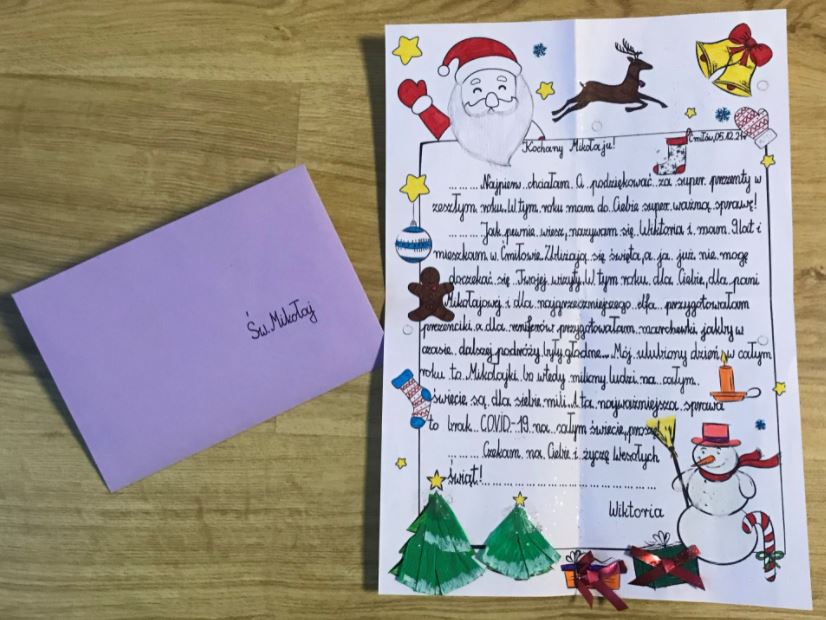 Św. Mikołaj
Ćmiłów, 05.12.21r.
Kochany Mikołaju!
........Najpierw chciałam Ci podziękować za super prezenty w
zeszłym roku. W tym roku mam do Ciebie super ważną sprawę!
........Jak pewnie wiesz, nazywam się Wiktoria i mam 9 lat i
mieszkam w Ćmiłowie. Zbliżają się święta, a ja już nie mogę
doczekać się Twojej wizyty. W tym roku dla Ciebie, dla pani
Mikołajowej i dla najgrzeczniejszego elfa przygotowałam
prezenciki a dla reniferów przygotowałam marchewki jakby w
czasie dalszej podróży były głodne... Mój ulubiony dzień w całym
roku to Mikołajki bo wtedy miliony ludzi na całym
świecie są dla siebie mili. I ta najważniejsza sprawa
to brak COVID-19 na całym świecie, proszę!
........Czekam na Ciebie i życzę Wesołych
Świąt!
Wiktoria